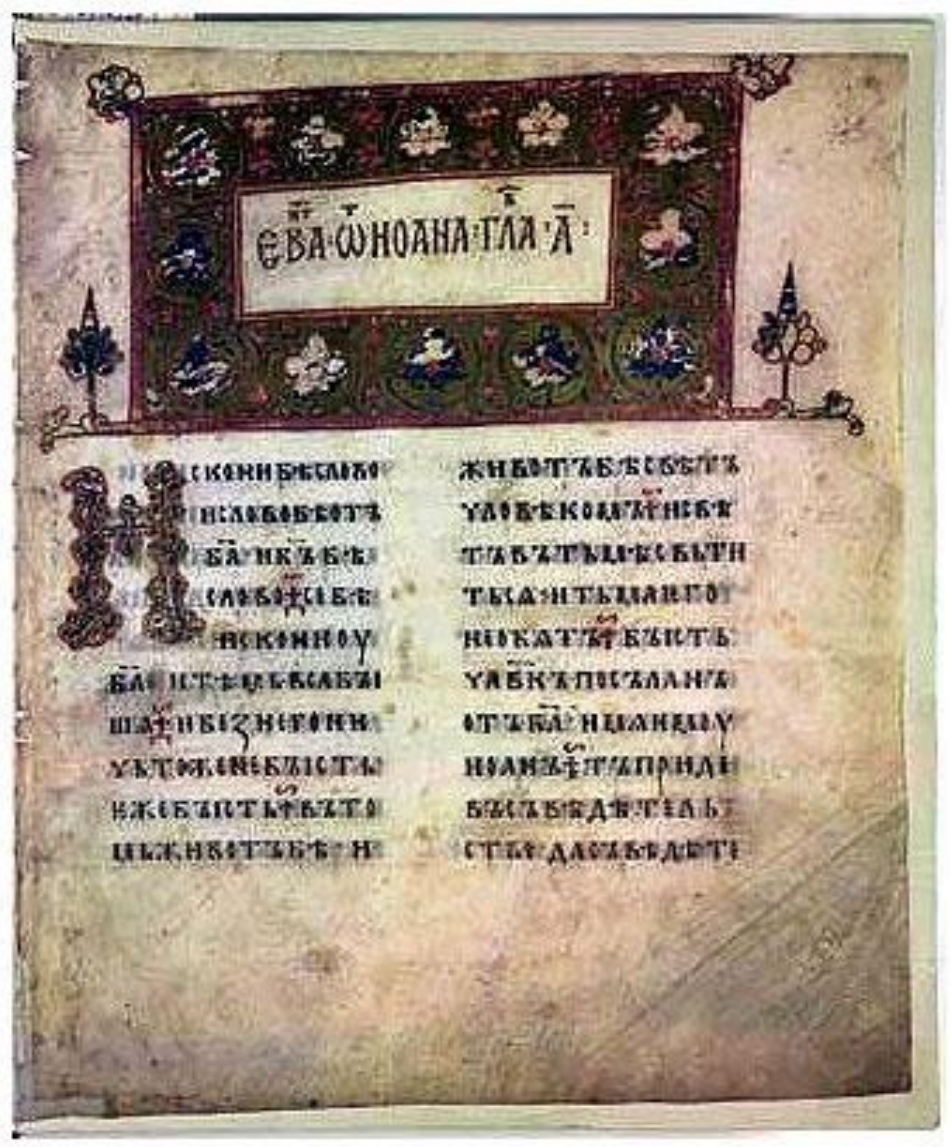 ЄВА·ѾИОАНА·ГЛА·А҃:
ИСКОНИБѢСЛОВО
ИСЛОВОБѢОТЪ
Б҃А·ИБ҃ЪБѢ
СЛОВО·СЕБѢ
ИСКОНИОУ
Б҃А·ИТѢМЬВЬСАБЪІ
ШѦ·ИБЕЗНЕГОНИ
ЧЬТОЖЕНЕБЪІСТЬ
ѤЖЕБЪІСТЬ·ВЪТО
МЬЖИВОТЪБѢ·И
ЖИВОТЪБѢСВѢТЪ
ЧЛОВѢКОМЪ·ИСВѢ
ТЪВЪТЬМѢСВЬТИ
ТЬСѦ·ИТЬМАѤГО
НЕОБѦТЪ·БЪІСТЬ
ЧЛВ҃КЪПОСЪЛАНЪ
ОТЪБ҃А·ИМѦѤМОУ
ИОАНЪ·ТЪПРИДЕ
ВЪСЪВѢДѢТЕЛЬ
СТВО·ДАСЪВѢДѢТЕ